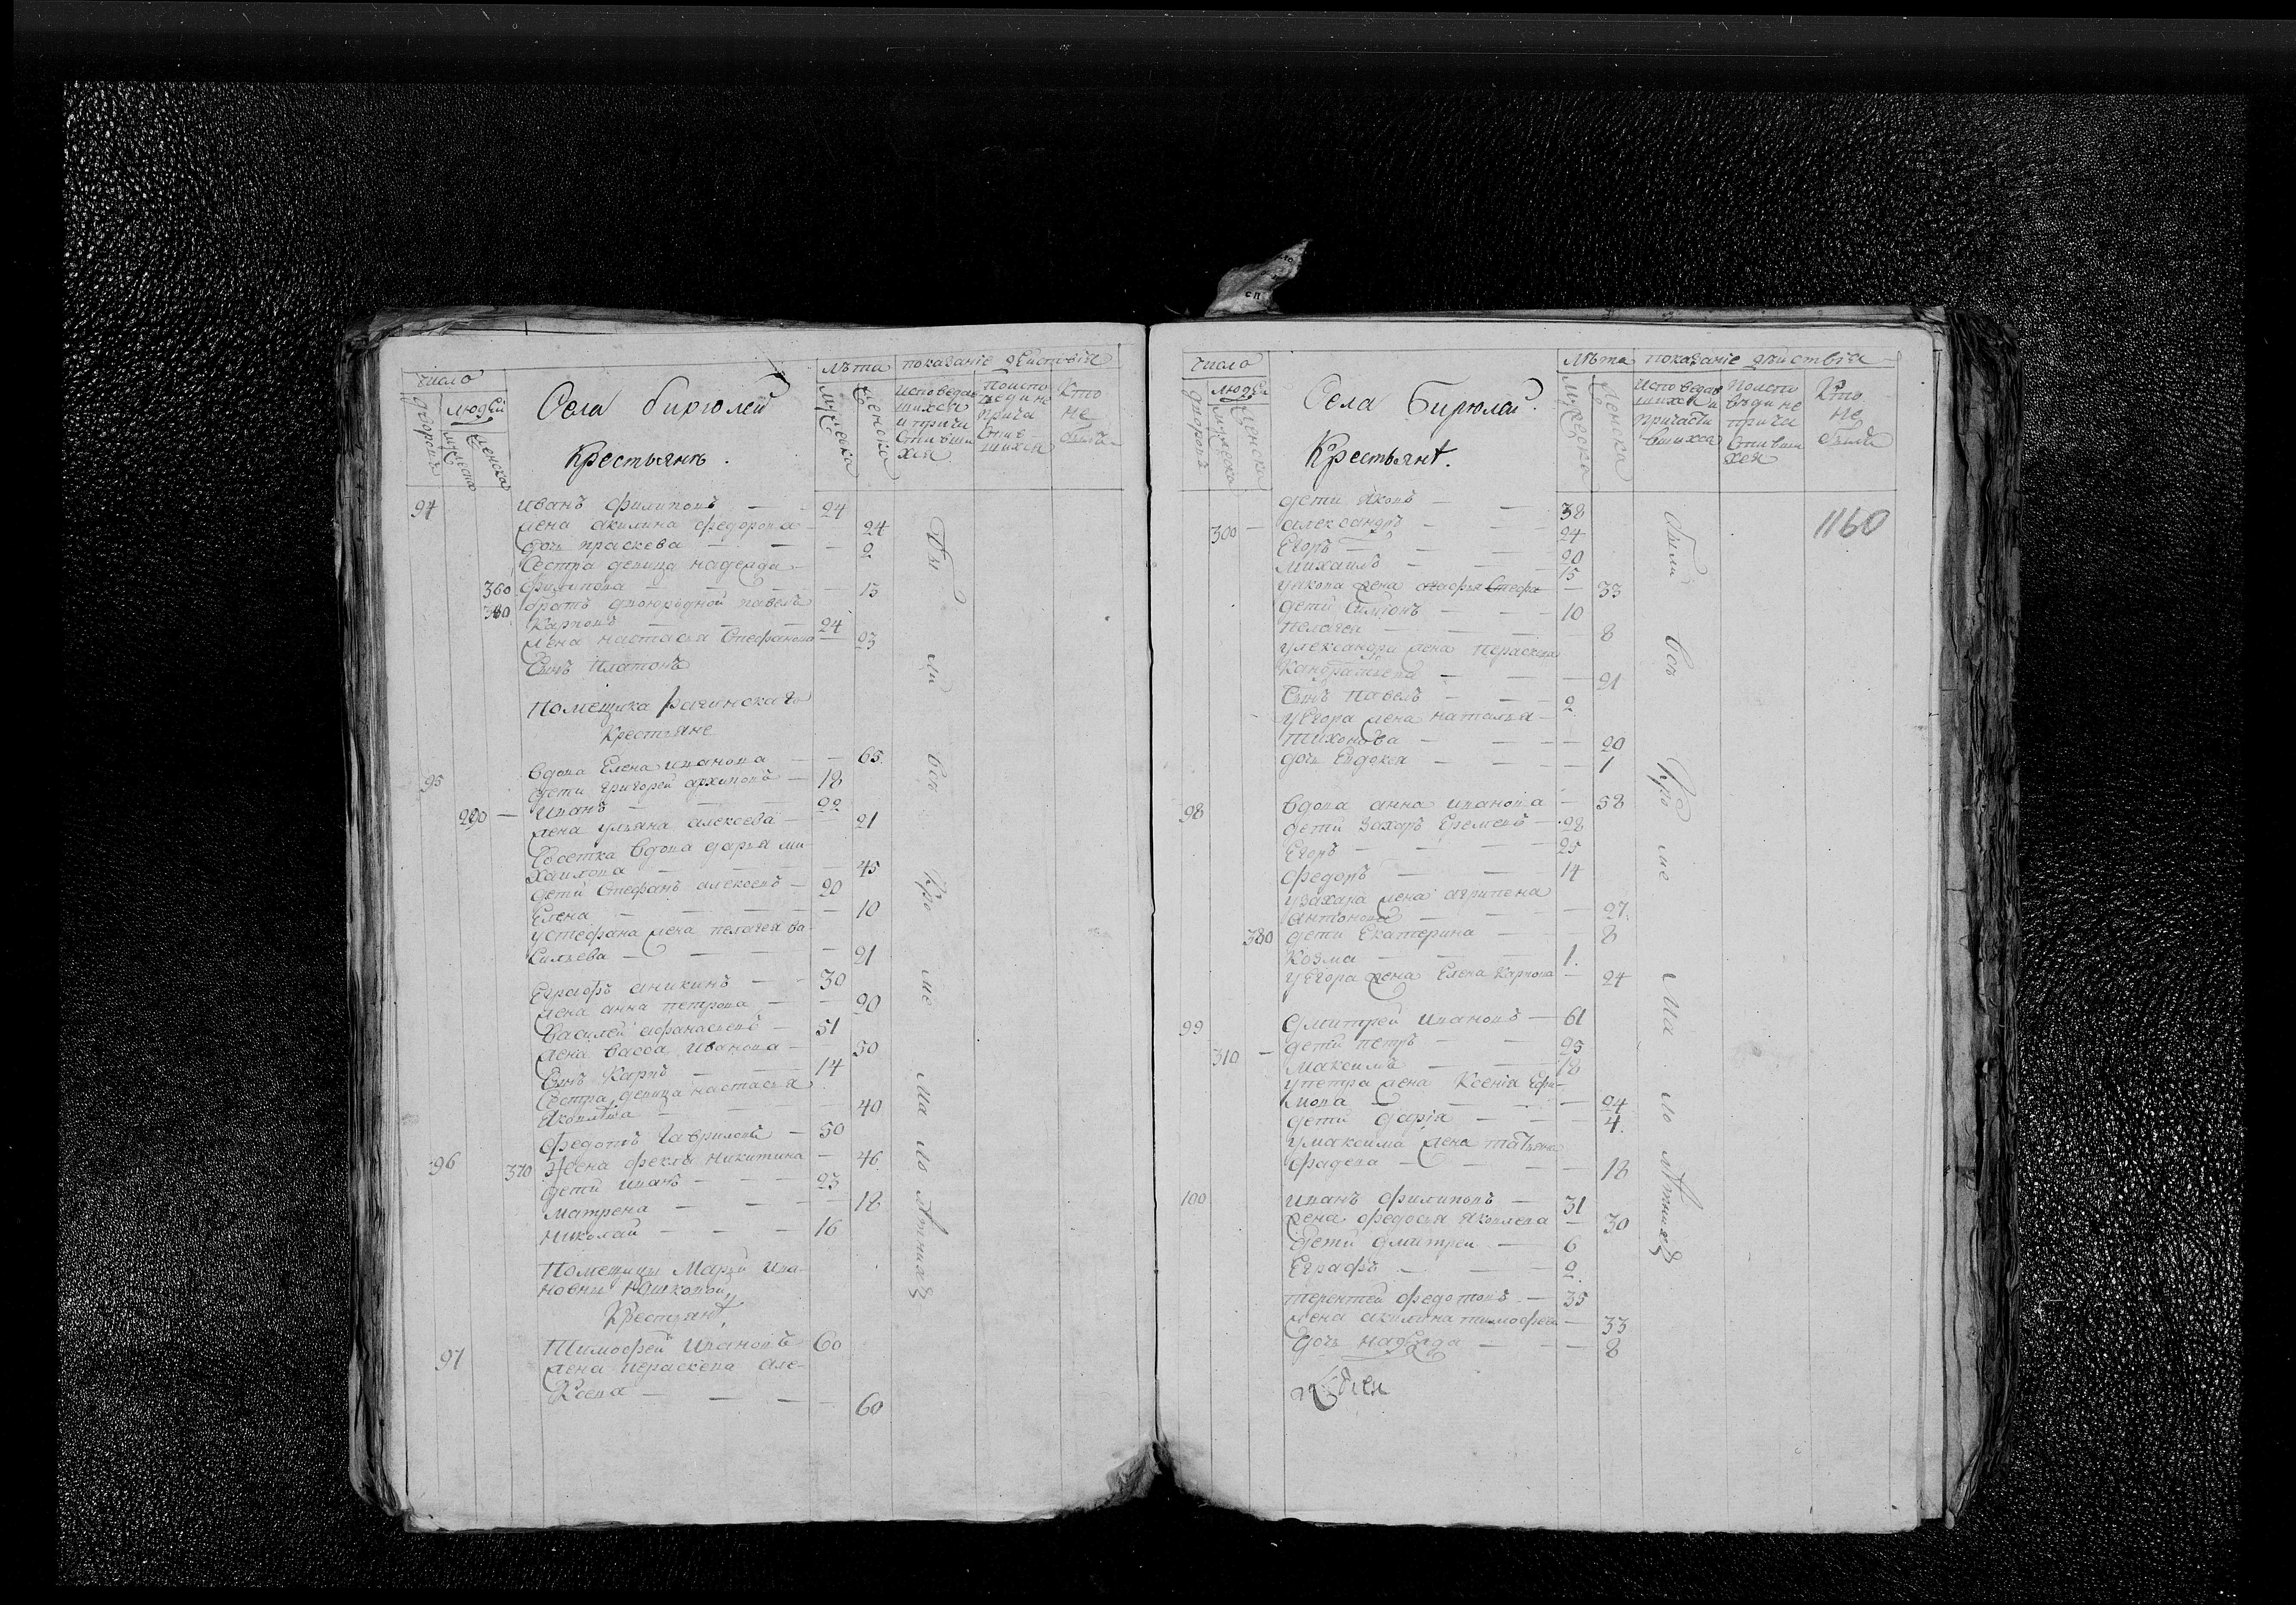 число
лѣта показанiе действiя
дворовъ
людей
мужеска
женска
Села бирюлей
Крестьянъ.
мужеска
женска
исповедав
шихся
и прича
стивши
хся
поиспо
ведине
прича
стив
шихся
Кто
не
былъ
94 иванъ филиповъ — — 24
жена акилина федорова — 24
дочь праскева — — — 2
Сестра девица надежда —
360 филипова — — — — 13
380 братъ двоюродной павелъ
Карповъ — — — 24
жена настасья Стефанова — 23
Сынъ платонъ
помещика рагинскаго
Крестьяне
вдова Елена иванова — — 65
95 дети григорей архиповъ — 18
290 — иванъ — — — 22
жена ульяна алексеева — 21
Соетка вдова дарья ми
хаилова — — — 45
дети Стефанъ алексеевъ — 20
Елена — — — — 10
устефана жена пелагея ва
сильева — — — — 21
Еграфъ аникинъ — — 30
жена анна петрова — — 20
василей афанасьевъ — 51
жена васса иванова — 50
Сынъ Карпъ — — — 14
Сестра девица настасья
Яковлева — — — 40
федотъ гавриловъ — 50
96 370 Жена фекла никитина — 46
дети иванъ — — — 23
матрена — — — — 18
николай — — — 16
помещицы Марьи ива
новны
Крестьянъ
97 Тимофей ивановъ 60
жена пераскева але
Ксева — — — — 60
Бы ли всѣ Кро ме Ма ло лѣтнихъ
число
лѣта показанiе действiя
дворовъ
людей
мужеска
женска
Села Бирюлей.
Крестьянъ.
мужеска
женска
исповедав
шихся и
причасти
вшихся
поиспо
вѣдине
прича
стивши
хся
Кто
не
былъ
1160
дети яковъ — — 38
300 — александръ — — — 24
Егоръ — — — 20
михаилъ — — — 15
уякова жена агафья Стефа — 33
дети Симionъ — — — 10
пелагея — — — 8
уалександра жена пераскева
Кандратьева — — — 21
Сынъ павелъ — — — 2
уЕгора жена наталья —
тихонова — — — — 20
дочь Евдокея — — — 1
98 вдова анна иванова — 58
дети захаръ Еремеевъ — 28
Егоръ — — — 25
федоръ — — — 14
узахара жена агрипена
антонова — — — 27
380 дети Екатерина — — 8
Козма — — — 1.
уЕгора жена Елена карпова — 24
99 дмитрей ивановъ — 61
310 — дети петръ — — 25
максимъ — — — 18
упетра жена Ксенiа Ефи—
мова — — — — 24
дети дарiя — — — 4.
умаксима жена татьяна
фадева — — — — 18
100 иванъ филиповъ — 31
жена федосья яковлева — 30
дети дмитрей — — 6
Еграфъ — — — 2.
терентей федотовъ — 35
жена акилина тимофеев — 33
дочь надежда — — — 8
были всѣ Кро ме Ма ло лѣтнихъ